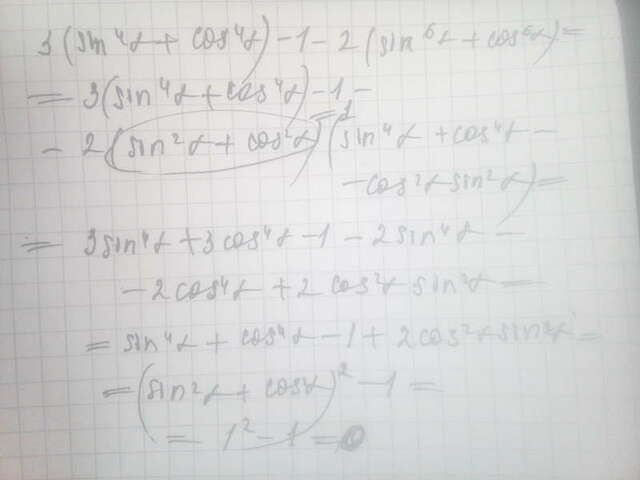 3(sin⁴α + cos⁴α) - 1 - 2(sin⁶α + cos⁶α) =
= 3(sin⁴α + cos⁴α) - 1 -
- 2(sin²α + cos²α)(sin⁴α + cos⁴α -
=1
- cos²α sin²α) =
= 3sin⁴α + 3cos⁴α - 1 - 2sin⁴α -
- 2cos⁴α + 2cos²α sin²α =
= sin⁴α + cos⁴α - 1 + 2cos²α sin²α =
= (sin²α + cos²α)² - 1 =
= 1² - 1 = 0